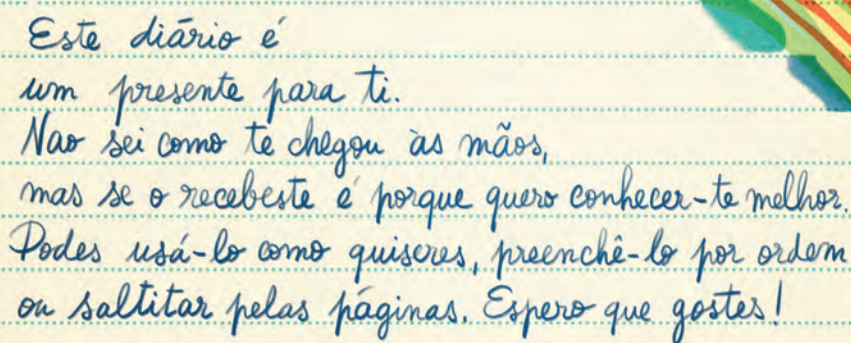 Este diário é
um presente para ti.
Não sei como te chegou às mãos,
mas se o recebeste é porque quero conhecer-te melhor.
Podes usá-lo como quiseres, preenchê-lo por ordem
ou saltitar pelas páginas. Espero que gostes!